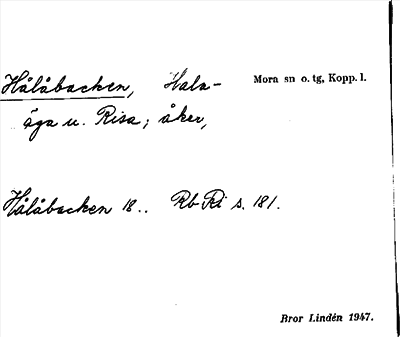 Hålåbacken, Hala- Mora sn o. tg, Kopp. l.
äga u. Risa; åker,
Hålåbacken 18.. Rb Ri s. 181.
Bror Lindén 1947.